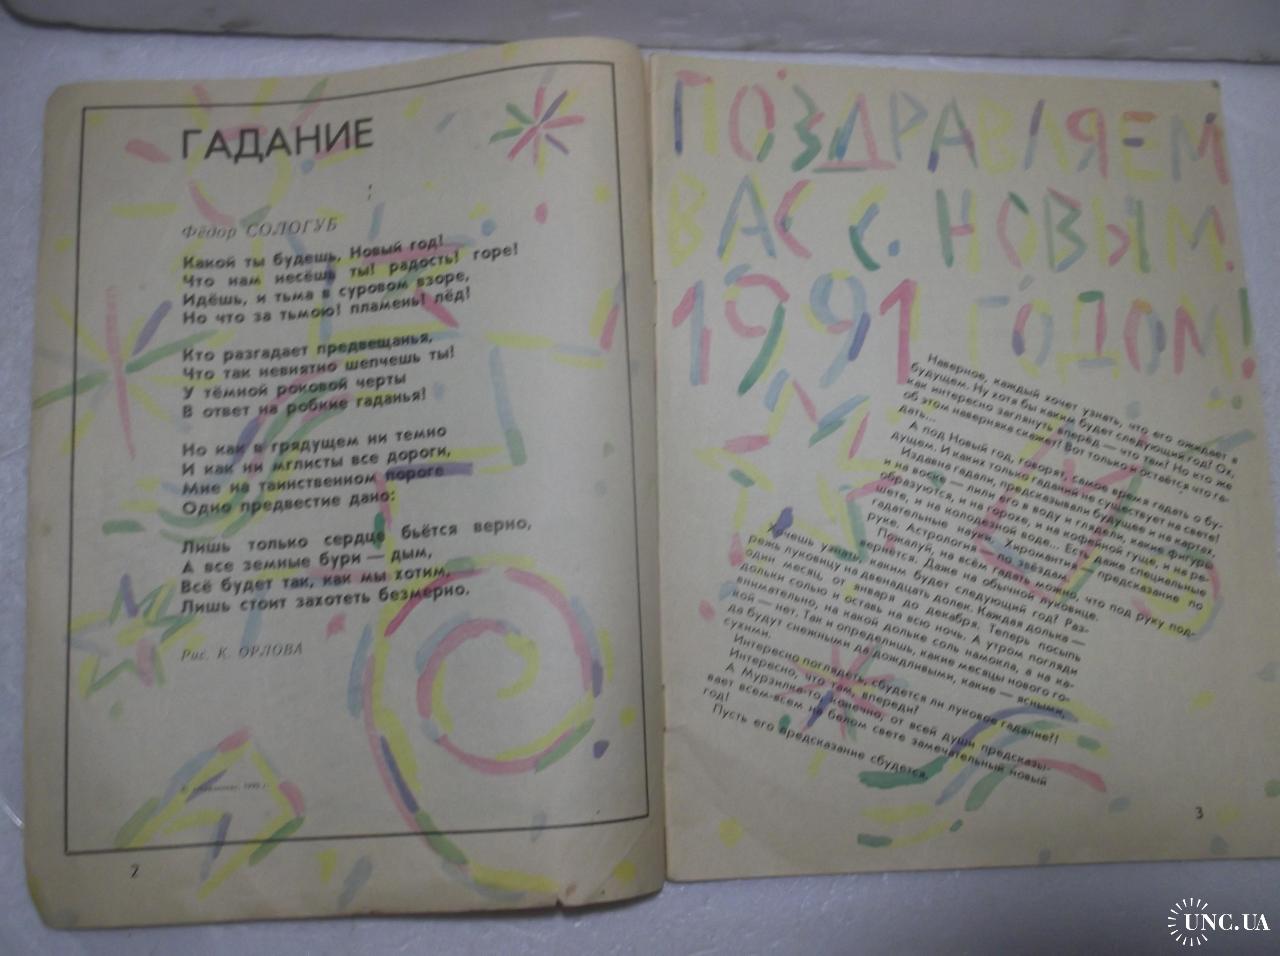 ГАДАНИЕ
Фёдор СОЛОГУБ
Какой ты будешь, Новый год!
Что нам несёшь ты! радость! горе!
Идёшь, и тьма в суровом взоре,
Но что за тьмою! пламень! лёд!
Кто разгадает предвещанья,
Что так невнятно шепчешь ты!
У тёмной роковой черты
В ответ на робкие гаданья!
Но как в грядущем ни темно
И как ни мглисты все дороги,
Мне на таинственном пороге
Одно предвестие дано:
Лишь только сердце бьётся верно,
А все земные бури — дым,
Всё будет так, как мы хотим,
Лишь стоит захотеть безмерно.
Рис. К. ОРЛОВА
2
ПОЗДРАВЛЯЕМ
ВАС С НОВЫМ
1991 ГОДОМ!
Наверное, каждый хочет узнать, что его ожидает в
будущем. Ну хотя бы каким будет следующий год! Ох,
как интересно заглянуть вперёд — что там? Но кто же
об этом наверняка скажет? Вот только и остаётся что га-
дать...
А под Новый год, говорят, самое время гадать о бу-
дущем. И каких только гаданий не существует на свете!
Издавна гадали, предсказывали будущее и на картах,
и на воске — лили его в воду и глядели, какие фигуры
образуются, и на горохе, и на кофейной гуще, и на ре-
шете, и на колодезной воде... Есть даже специальные
гадательные науки. Хиромантия — предсказание по
руке. Астрология — по звёздам.
Пожалуй, на всём гадать можно, что под руку под-
вернётся. Даже на обычной луковице.
Хочешь узнать, каким будет следующий год? Раз-
режь луковицу на двенадцать долек. Каждая долька —
один месяц, от января до декабря. Теперь посыпь
дольки солью и оставь на всю ночь. А утром погляди
внимательно, на какой дольке соль намокла, а на ка-
кой — нет. Так и определишь, какие месяцы нового го-
да будут снежными да дождливыми, какие — ясными,
сухими.
Интересно поглядеть, сбудется ли луковое гадание?!
Интересно, что там, впереди?
А Мурзилка-то, конечно, от всей души предсказы-
вает всем-всем на белом свете замечательный новый
год!
Пусть его предсказание сбудется.
3
UNC.UA